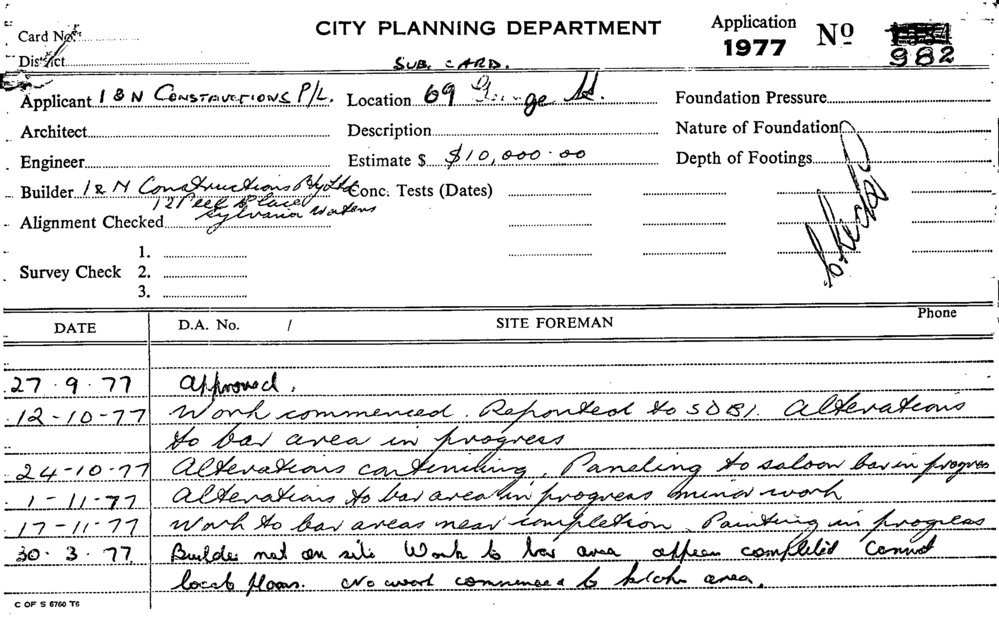 CITY PLANNING DEPARTMENT
Card No.
Application 1977 Nº 982
District
SUB. CARD.
Applicant I & N CONSTRUCTIONS P/L. Location 69 George St. Foundation Pressure
Architect Description Nature of Foundation
Engineer Estimate $ $10,000.00 Depth of Footings
Builder I & N Constructions Pty Ltd Conc. Tests (Dates)
12 Peel Place
Sylvania Waters
Alignment Checked
1.
Survey Check 2.
3.
DATE D.A. No. / SITE FOREMAN Phone
27.9.77 Approved.
12-10-77 Work commenced. Reported to SDBI. Alterations
to bar area in progress
24-10-77 Alterations continuing. Paneling to saloon bar in progress
1-11-77 Alterations to bar area in progress minor work
17-11-77 Work to bar areas near completion. Painting in progress
30.3.77. Builder not on site Work to bar area appears completed Cannot
locate plans. No work commenced to kitchen area.
C OF S 6760 T6